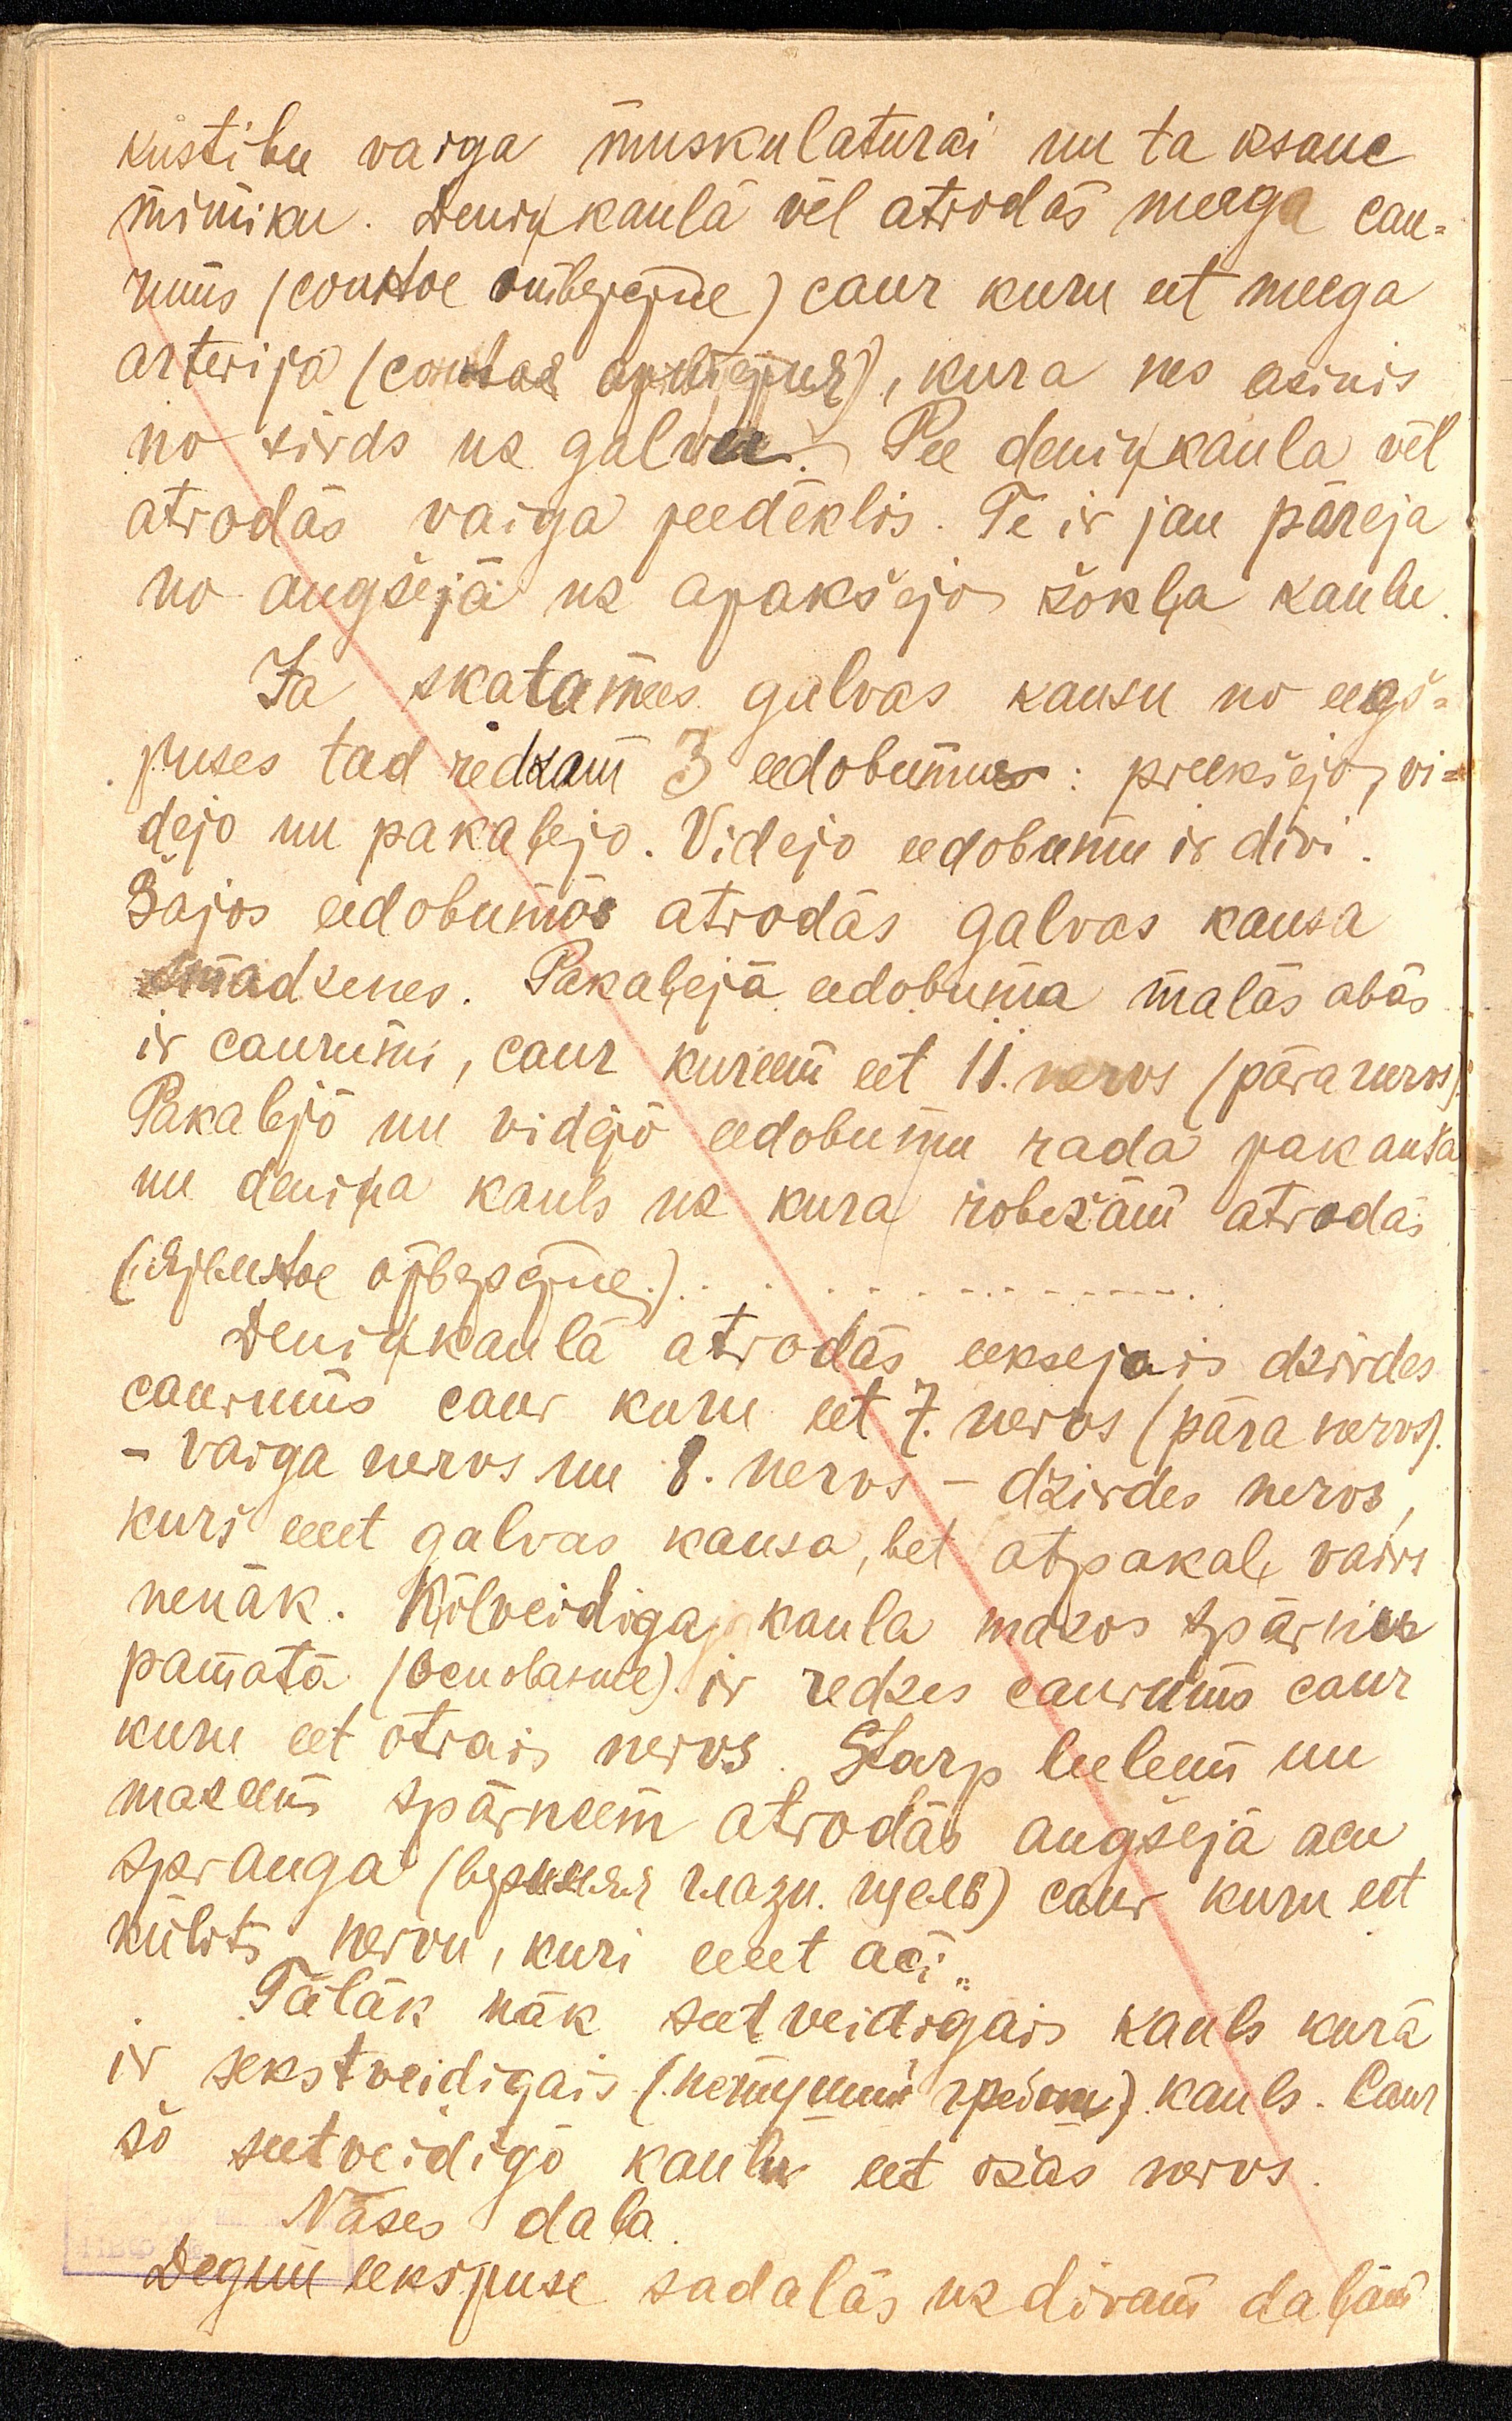 kustibu vaiga muskulaturai un ta ksauc
mimiku. Deniņkaulā vēl atrodās meega cau=
rums (сонное отверстие) caur kuru eet meega
arterija (сонная артерия), kura nes asinis
no sirds uz galvu. Pee deniņkaula vēl
atrodās vaiga peedēklis. Te ir jau pāreja
no augšejā uz apakšejo žokļa kaulu.
Ja skatamees galvas kausu no eegš=
puses tad redzam 3 eedobumus: preekšejo, vi=
dejo un pakaļejo. Videjo eedobumu ir divi.
Šajos eedobumos atrodās galvas kausa
smadzenes. Pakaļejā eedobuma malās abās
ir caurumi, caur kureem eet 11. nervs (pāra nervs).
Pakaļjō un vidējō eedobumu rada pakauša
un deniņa kauls uz kura robežām atrodās
(отверстие) . . . . . . . . . . . .
Deniņkaulā atrodās eeksejais dzirdes
caurums caur kuru eet 7. nervs (pāra nervs).
- vaiga nervs un 8. nervs - dzirdes nervs,
kurš eeet galvas kausa, bet atpakaļ vairs
nenāk. Ķīlveidiga kaula mazos spārnus
pamatā (основание) ir redzes caurums caur
kuru eet otrais nervs. Starp leeleem un
mazeem spārneem atrodās augšejā acu
spranga (верхняя глазн. щель) caur kuru eet
nervu, kuri eeet acī.
Tālāk nāk seetveidigais kauls kurā
ir sekstveidigais (петуший гребень) kauls. Caur
šo seetveidigō kaulu eet ožas nervs.
Nāses daļa.
Degun eekšpuse sadalās uz divam daļām